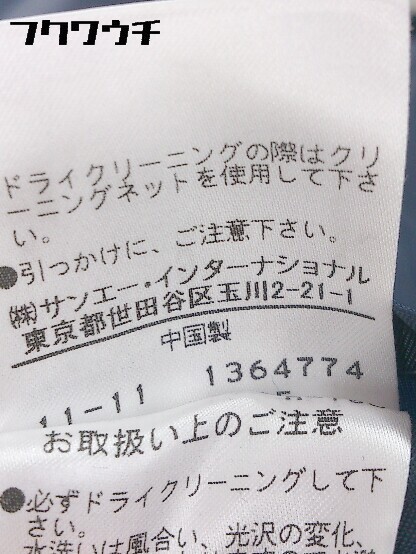 フクワウチ
ドライクリーニングの際はクリ
ーニングネットを使用して下さ
い。
●引っかけに、ご注意下さい。
㈱サンエー・インターナショナル
東京都世田谷区玉川2-21-1
中国製
11-11 1364774
お取扱い上のご注意
●必ずドライクリーニングして下
さい。
水洗いは風合い、光沢の変化、